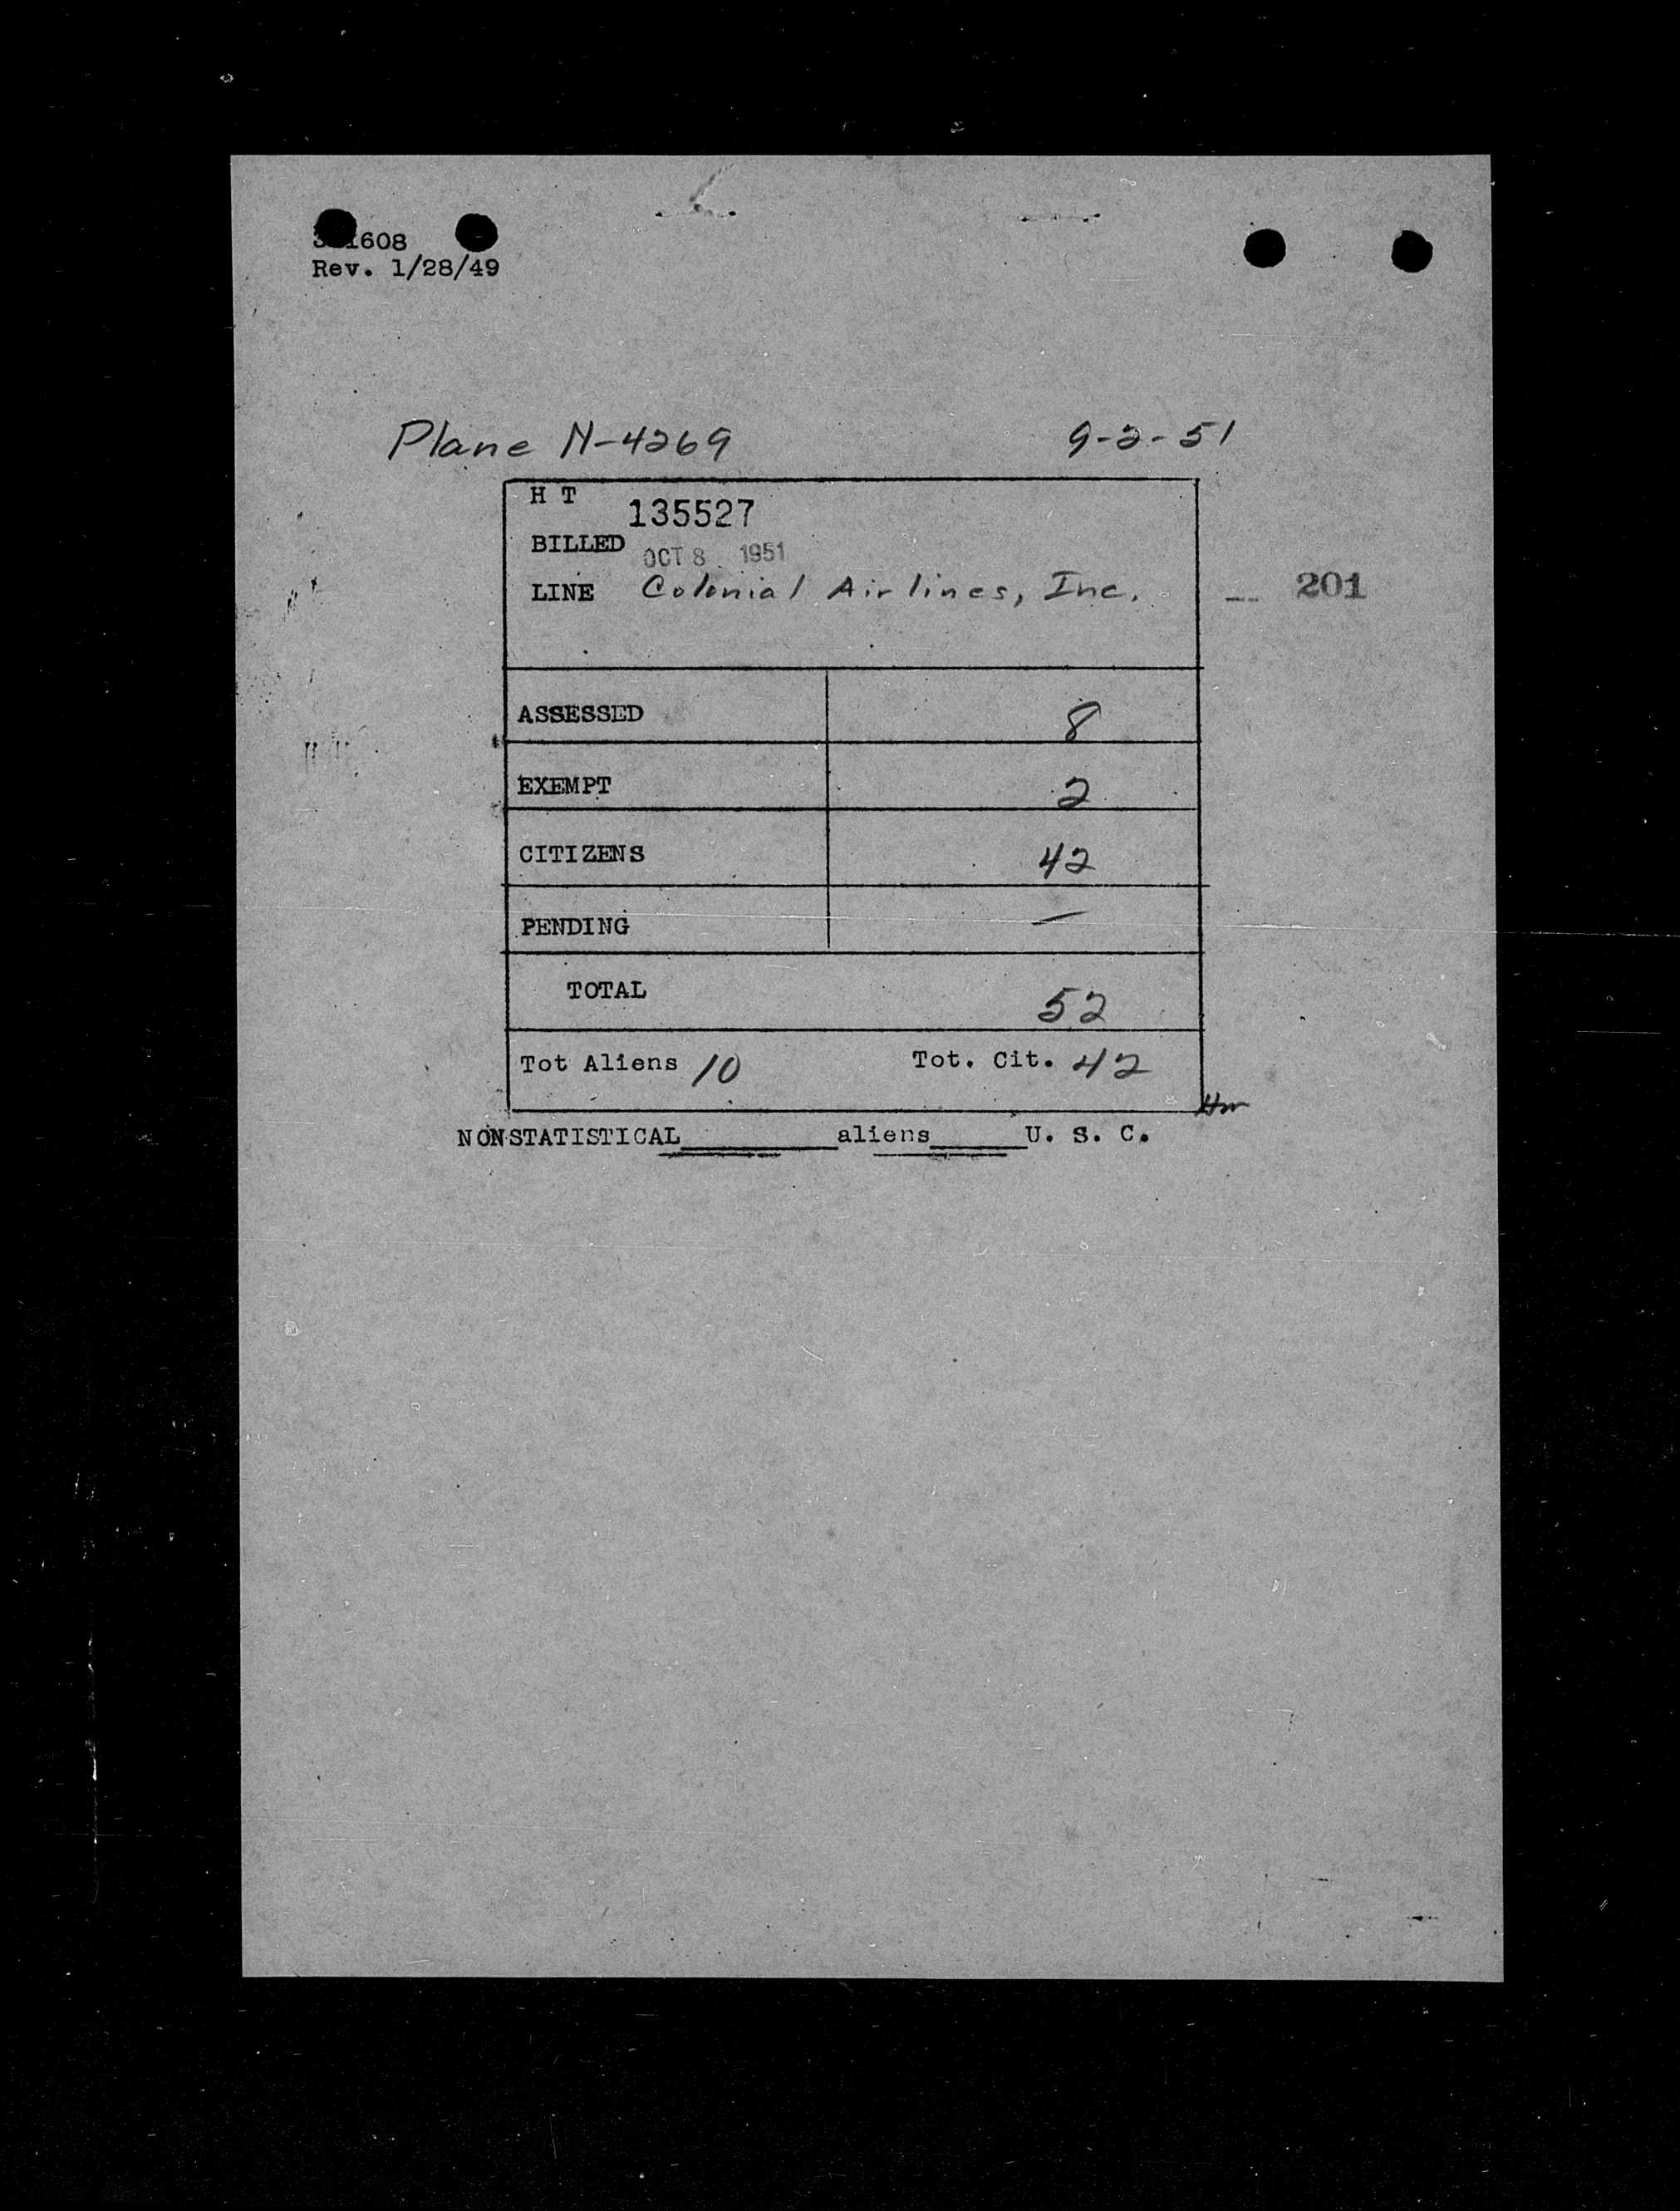 1608
Rev. 1/28/49
Plane N-4269 9-2-51
H T 135527
BILLED OCT 8 1951
LINE Colonial Airlines, Inc. 201
ASSESSED 8
EXEMPT 2
CITIZENS 42
PENDING —
TOTAL 52
Tot Aliens 10 Tot. Cit. 42
NONSTATISTICAL________aliens______U. S. C.